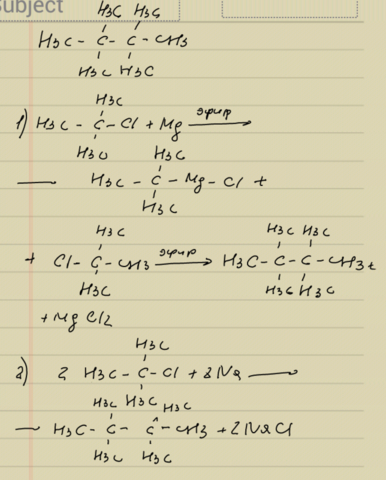 Subject
H3C H3C
H3C - C - C - CH3
H3C H3C
H3C
1) H3C - C - Cl + Mg эфир
H3C
H3C
H3C - C - Mg - Cl +
H3C
H3C
+ Cl - C - CH3 эфир H3C - C - C - CH3 +
H3C H3C
H3C
H3C H3C
+ MgCl2
H3C
2) 2 H3C - C - Cl + 2Na
H3C
H3C H3C
H3C - C - C - CH3 + 2NaCl
H3C H3C